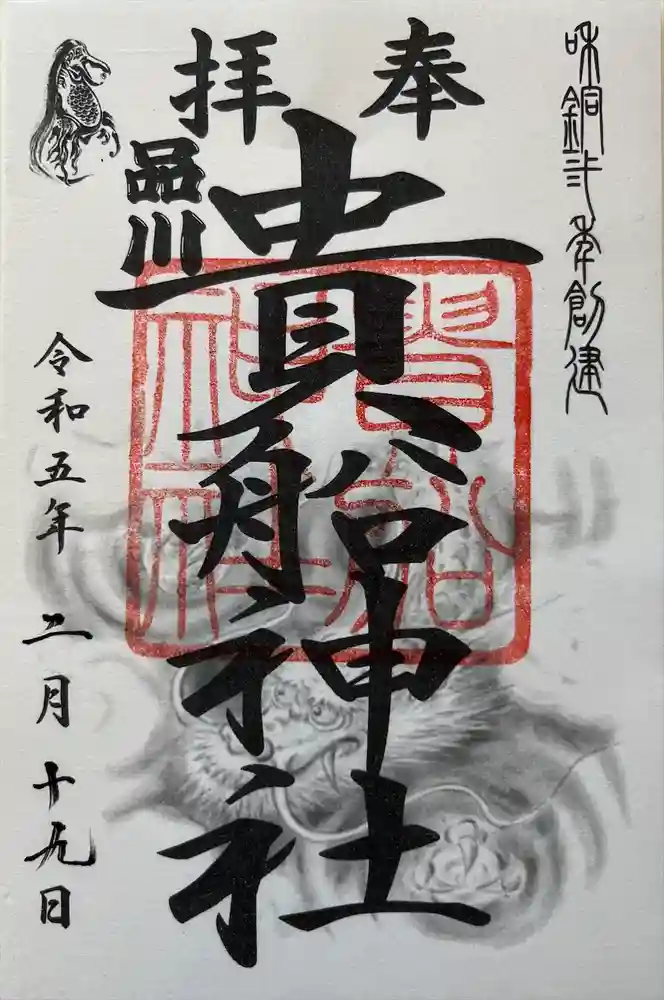 咊銅弍年創建
奉拝
品川
貴船神社
貴船
神社
令和五年 二月 十九日